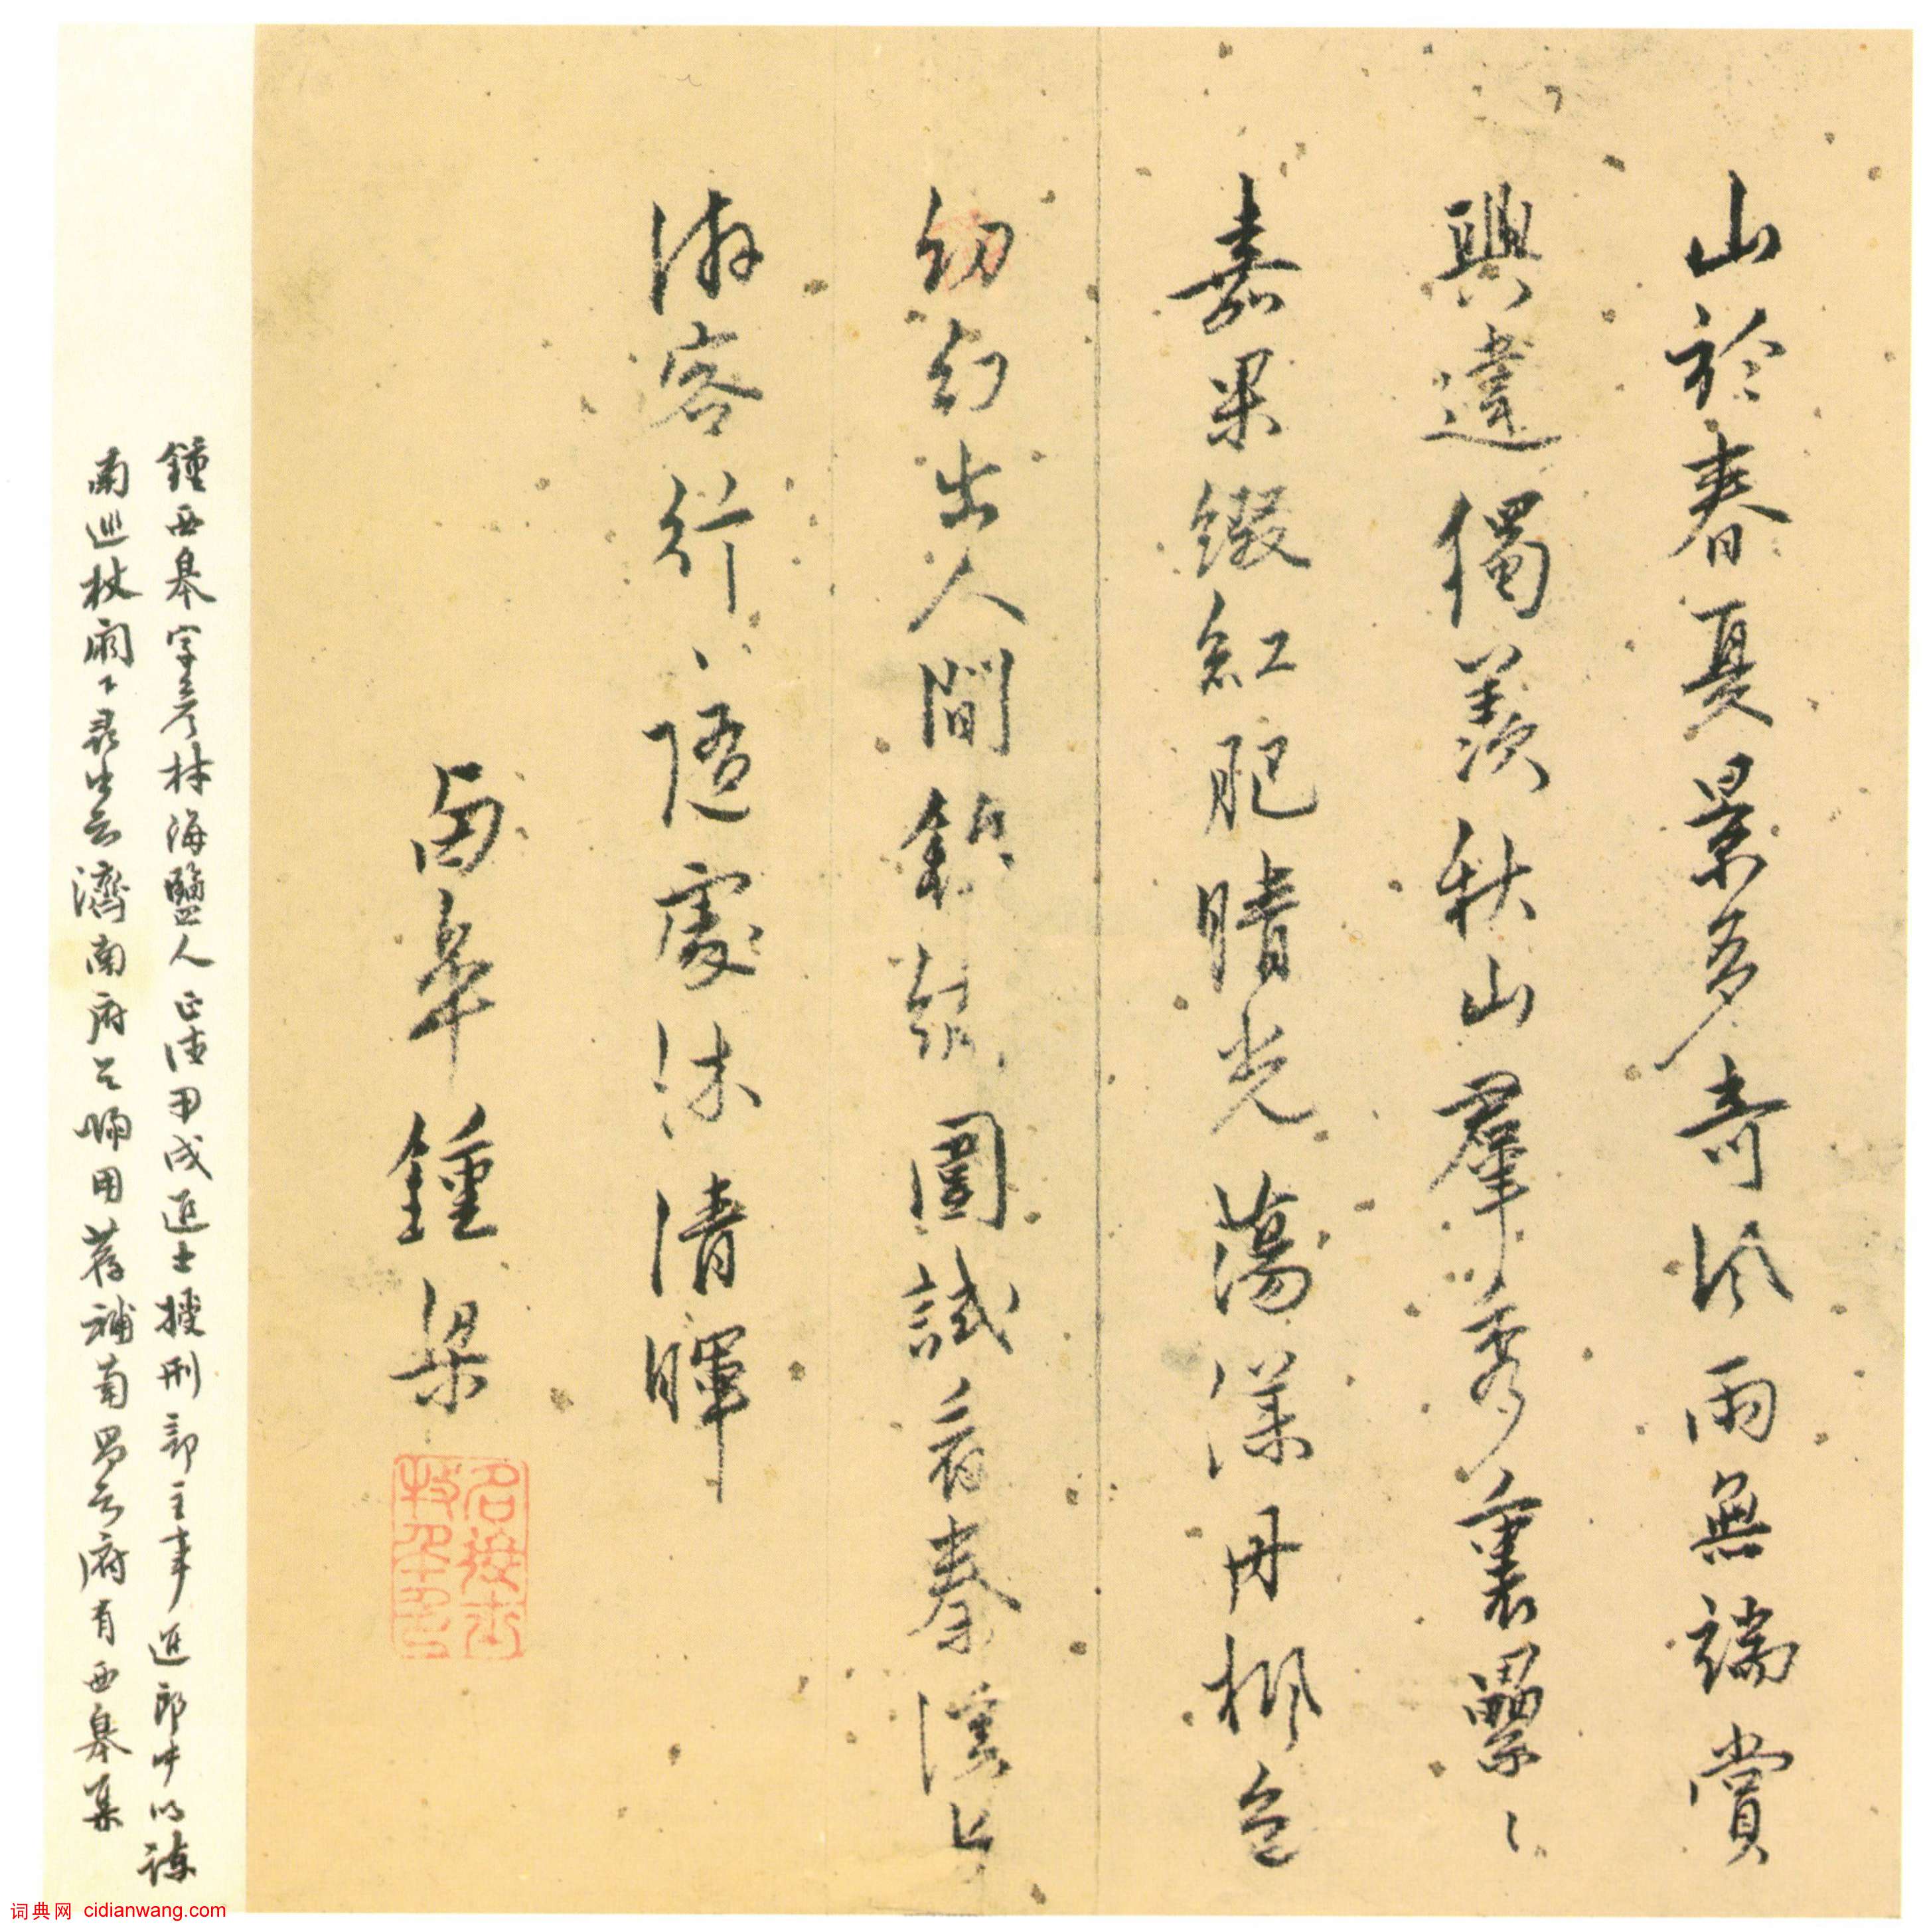 山於春夏景多奇風雨無端賞
興違獨羨秋山群秀裏纍纍
嘉果綴紅肥晴光蕩漾丹楓色
幻幻出人間錦繡圍試看秦溪上
游客行行隨處沐清暉
西皋鍾梁
鍾西皋字彥材海鹽人正德甲戌進士授刑部主事進郎中以諫
南巡杖闕下尋出知濟南府以歸用荐補南昌知府有西皋集
词典网 cidianwang.com